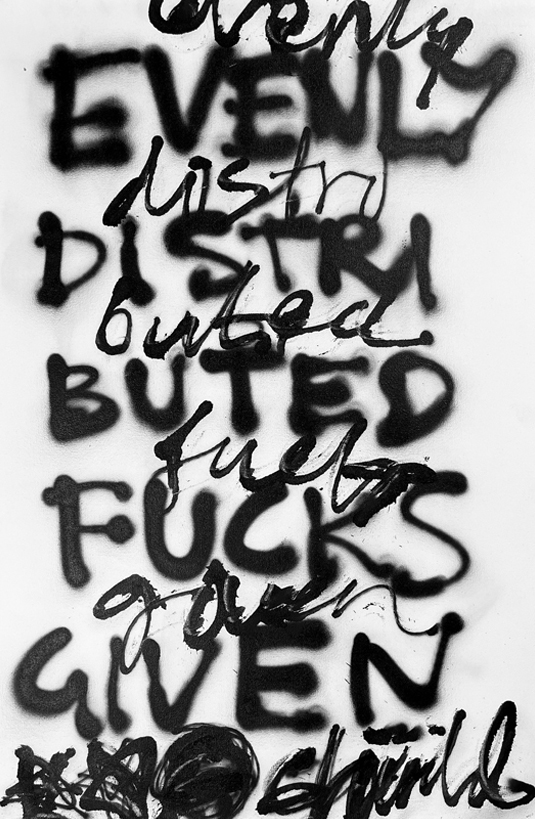 evenly
EVENLY
distri
DISTRI
buted
BUTED
fucks
FUCKS
given
GIVEN